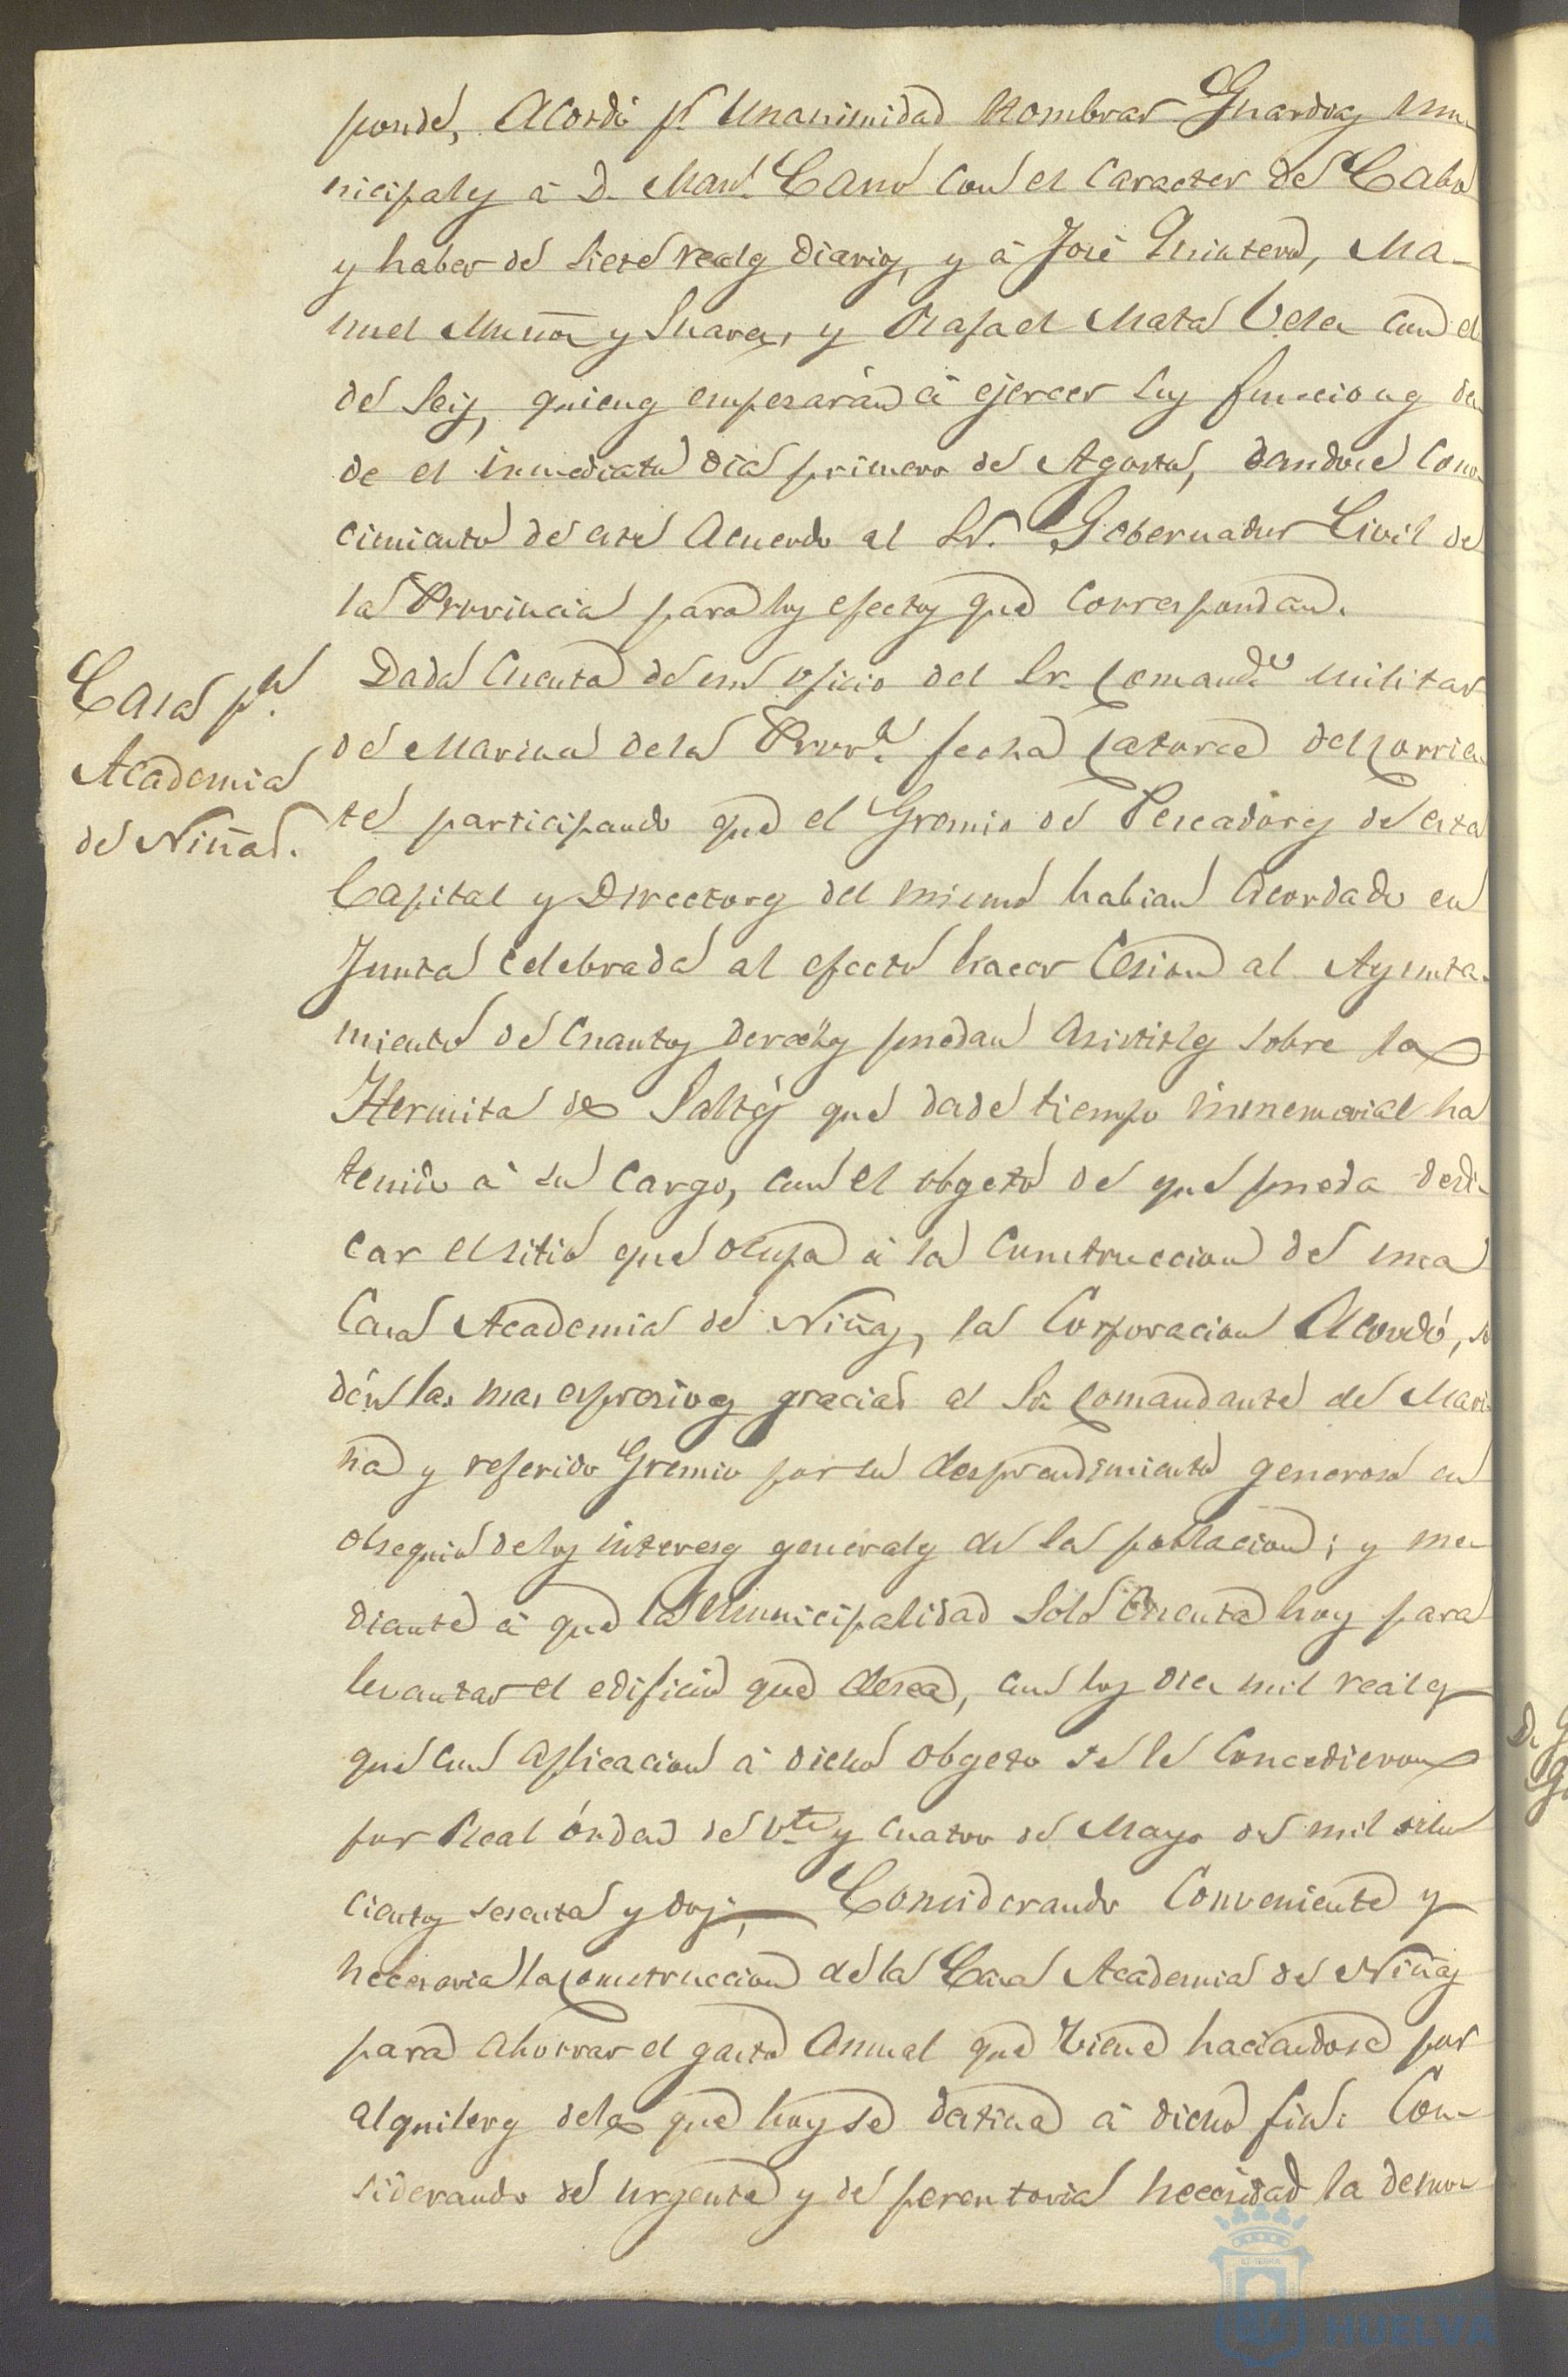 ponde, Acordó pr. Unanimidad Nombrar Guardas mu-
nicipales á D. Manl. Cano con el Caracter de Cabo
y haber de siete reales diarios, y á José Quintero, Ma-
nuel Muñoz y Suarez, y Rafael Mata Vela con el
de seis, quienes empezarán á ejercer sus funciones des
de el inmediato dia primero de Agosto, dandose cono-
cimiento de este Acuerdo al Sr. Gobernador Civil de
la Provincia para los efectos que correspondan.
Casa pa.
Academia
de Niñas.
Dada Cuenta de un oficio del Sr. Comande. militar
de Marina de la Prova. fecha catorce del corrien
te participando que el Gremio de Pescadores de esta
Capital y Directores del mismo habian acordado en
Junta celebrada al efecto hacer Cesion al Ayunta-
miento de cuantos derechos puedan asistirles sobre la
Hermita de Saltés que desde tiempo inmemorial ha
tenido á su cargo, con el obgeto de que pueda dedi-
car el sitio que ocupa á la Construccion de una
Casa Academia de Niñas, la Corporacion Acordó, se
dén las mas espresivas gracias al Sr. Comandante de Mari-
na y referido Gremio por su desprendimiento generoso en
obsequio de los intereses generales de la poblacion; y me-
diante á que la Municipalidad solo cuenta hoy para
levantar el edificio que desea, con los diez mil reales
que con aplicacion á dicho obgeto se le Concedieron
por Real órden de Vte. y cuatro de Mayo de mil ocho
cientos sesenta y dos; Considerando Conveniente y
necesaria la construccion de la Casa Academia de Niñas
para ahorrar el gasto Annual que viene haciendose por
alquileres de la que hoy se destina á dicho fin: Con-
siderando de urgente y de perentoria necesidad la demo-
AYUNTAMIENTO DE
HUELVA